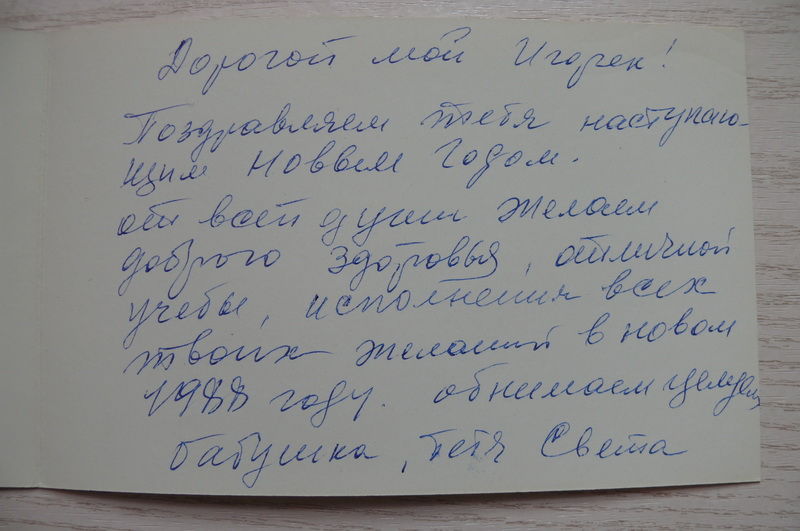 Дорогой мой Игорек!
Поздравляем тебя наступаю-
щим новым годом.
от всей души желаем
доброго здоровья, отличной
учебы, исполнения всех
твоих желаний в новом
1988 году. обнимаем целуем
бабушка, тетя Света